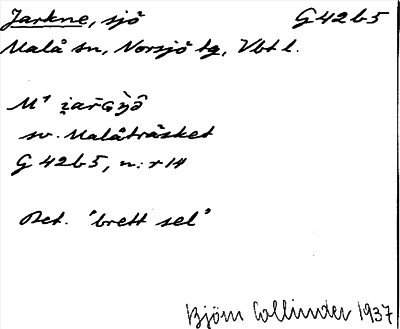 Jarkne, sjö G42b5
Malå sn, Norsjö tg, Vbt l.
sv. Malåträsket
G 42b5, n: r 14
Bet. "brett sel"
Björn Collinder 1937